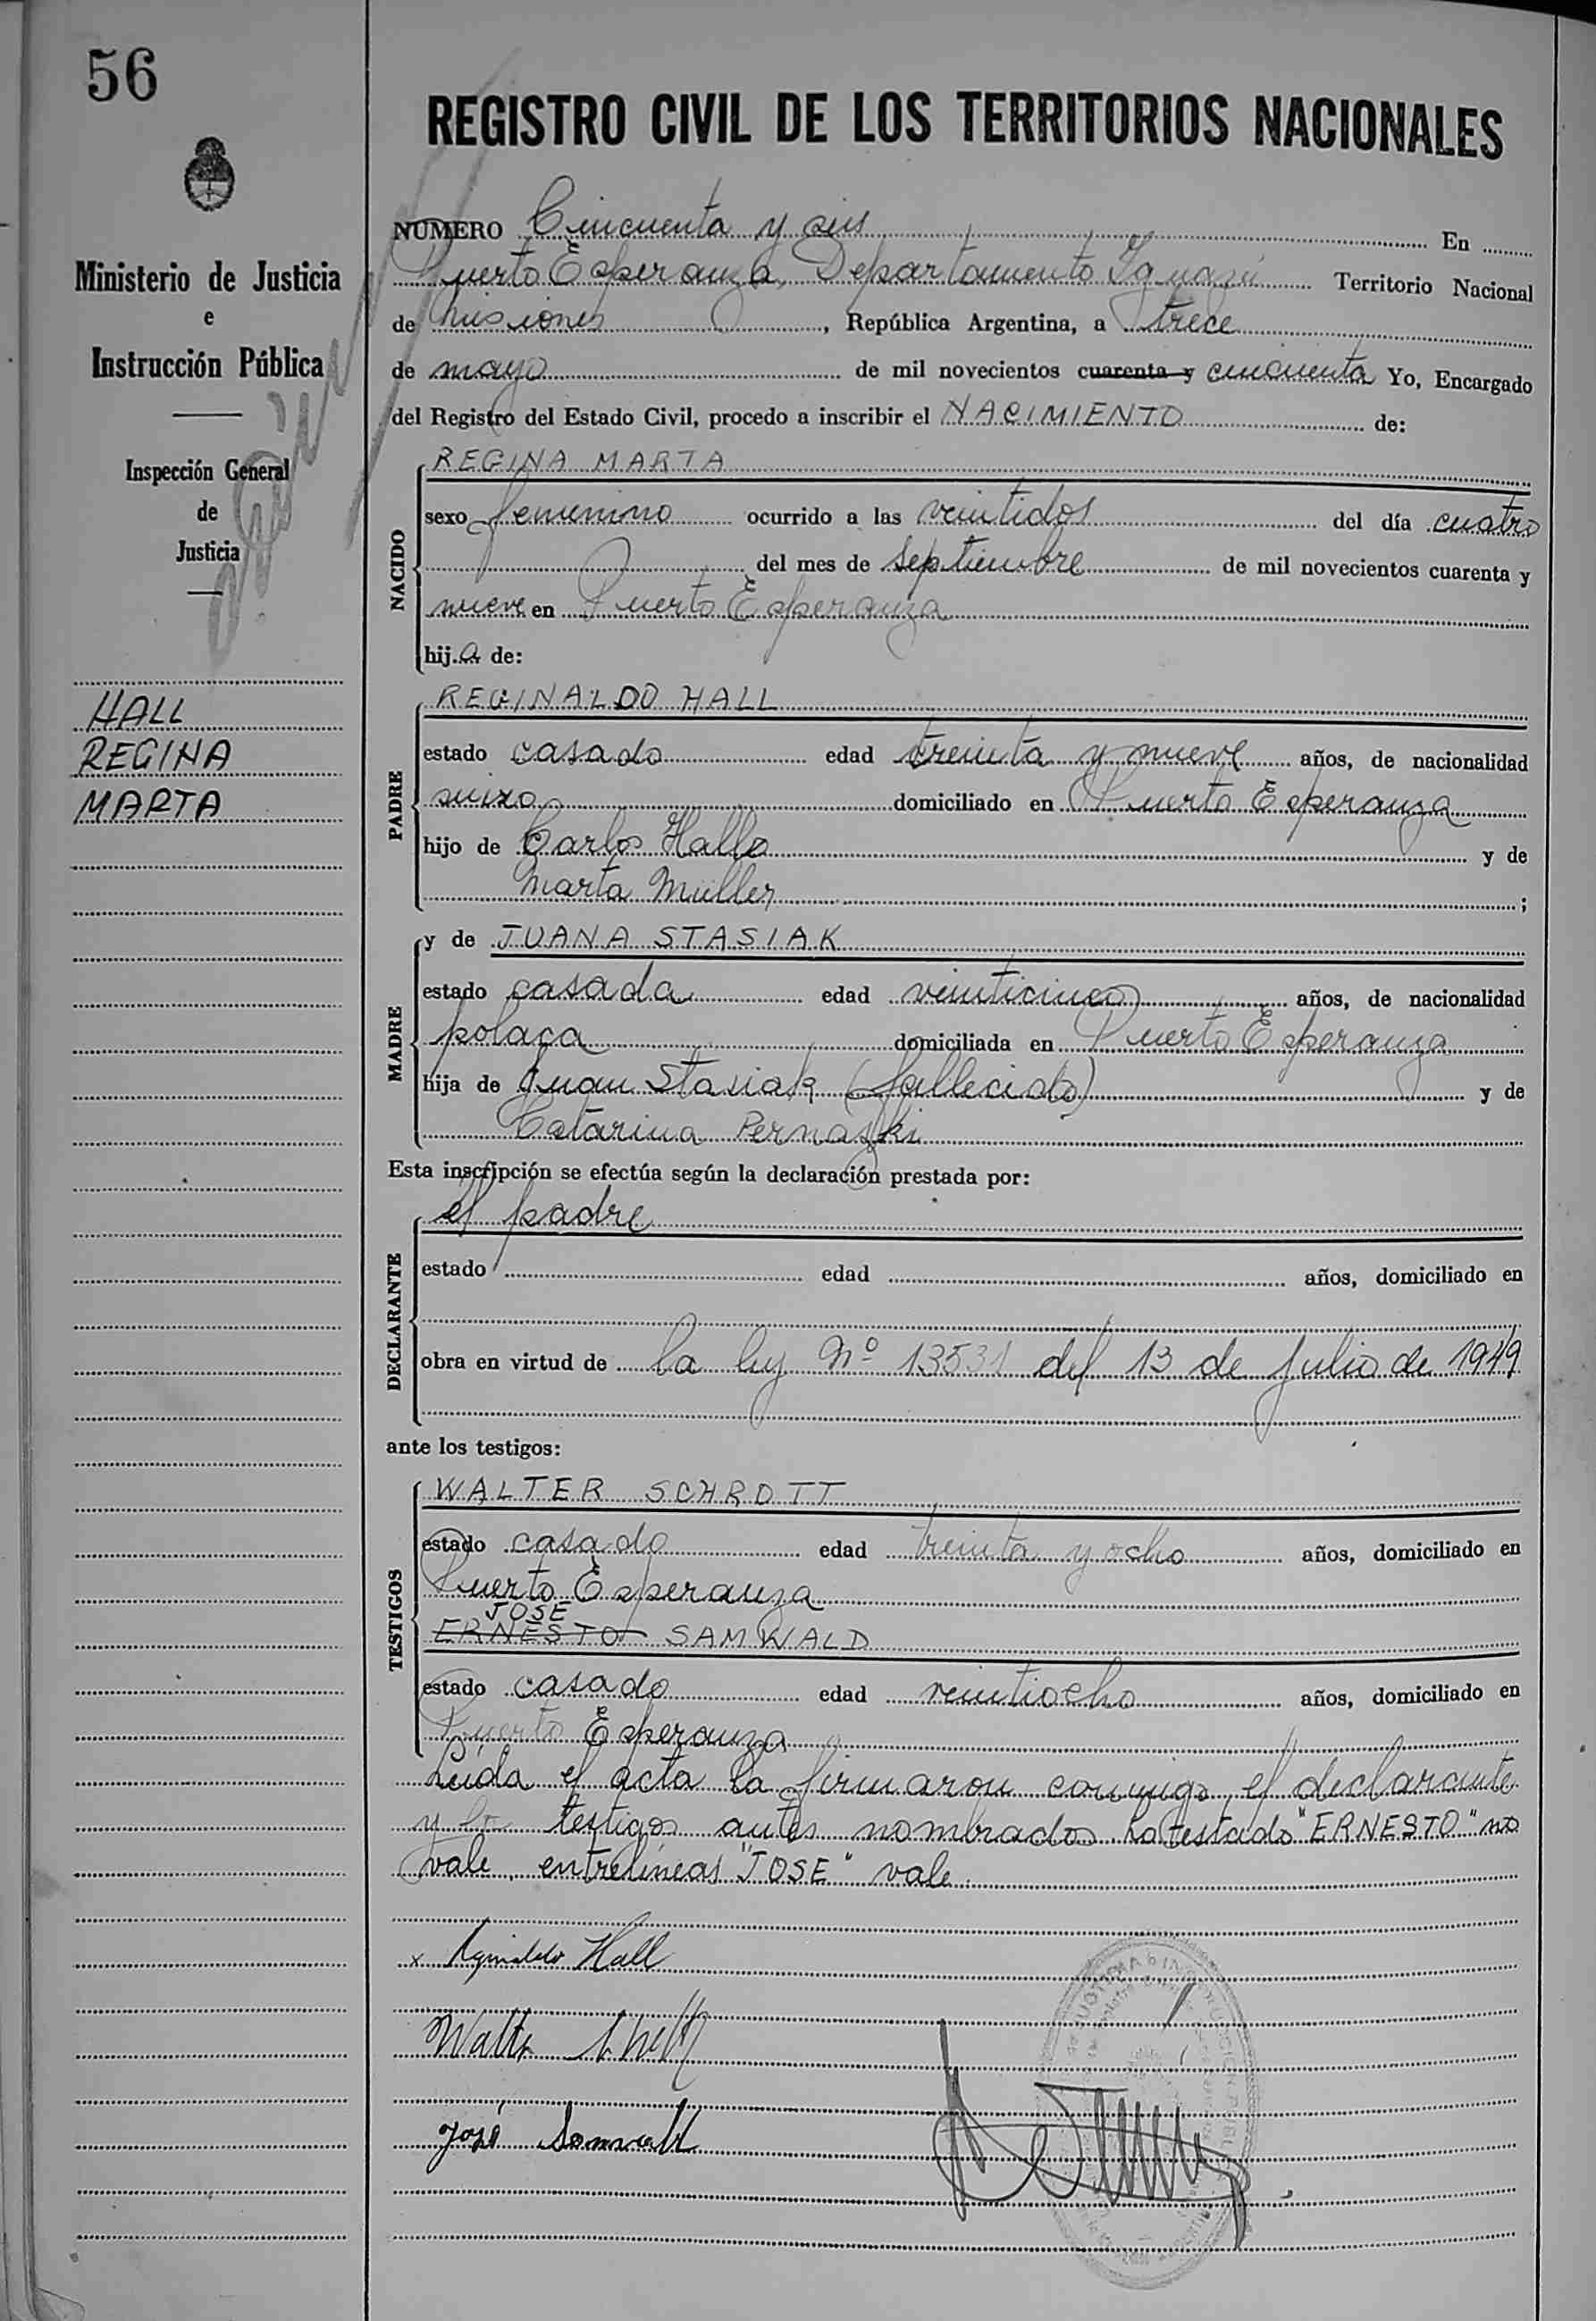 56
REGISTRO CIVIL DE LOS TERRITORIOS NACIONALES
Ministerio de Justicia
e
Instrucción Pública
Inspección General
de
Justicia
HALL
REGINA
MARTA
NUMERO Cincuenta y seis En
Puerto Esperanza, Departamento Iguazú Territorio Nacional
de Misiones, República Argentina, a trece
de mayo de mil novecientos cuarenta y cincuenta Yo, Encargado
del Registro del Estado Civil, procedo a inscribir el NACIMIENTO de:
NACIDO
REGINA MARTA
sexo femenino ocurrido a las veintidos del día cuatro
del mes de septiembre de mil novecientos cuarenta y
nueve en Puerto Esperanza
hija de:
PADRE
REGINALDO HALL
estado casado edad treinta y nueve años, de nacionalidad
suizo domiciliado en Puerto Esperanza
hijo de Carlos Hall y de
Marta Müller ;
MADRE
y de JUANA STASIAK
estado casada edad veinticinco años, de nacionalidad
polaca domiciliada en Puerto Esperanza
hija de Juan Stasiak (fallecido) y de
Catarina
Esta inscripción se efectúa según la declaración prestada por:
DECLARANTE
el padre
estado edad años, domiciliado en
obra en virtud de la ley Nº 13531 del 13 de Julio de 1949
ante los testigos:
TESTIGOS
WALTER SCHROTT
estado casado edad treinta y ocho años, domiciliado en
Puerto Esperanza
JOSE
ERNESTO SAMWALD
estado casado edad veintiocho años, domiciliado en
Puerto Esperanza
Leida el acta la firmaron conmigo, el declarante
y los testigos antes nombrados. Lo testado "ERNESTO" no
vale, entrelíneas "JOSE" vale.
x Reginaldo Hall
Walter Schrott
José Samwald